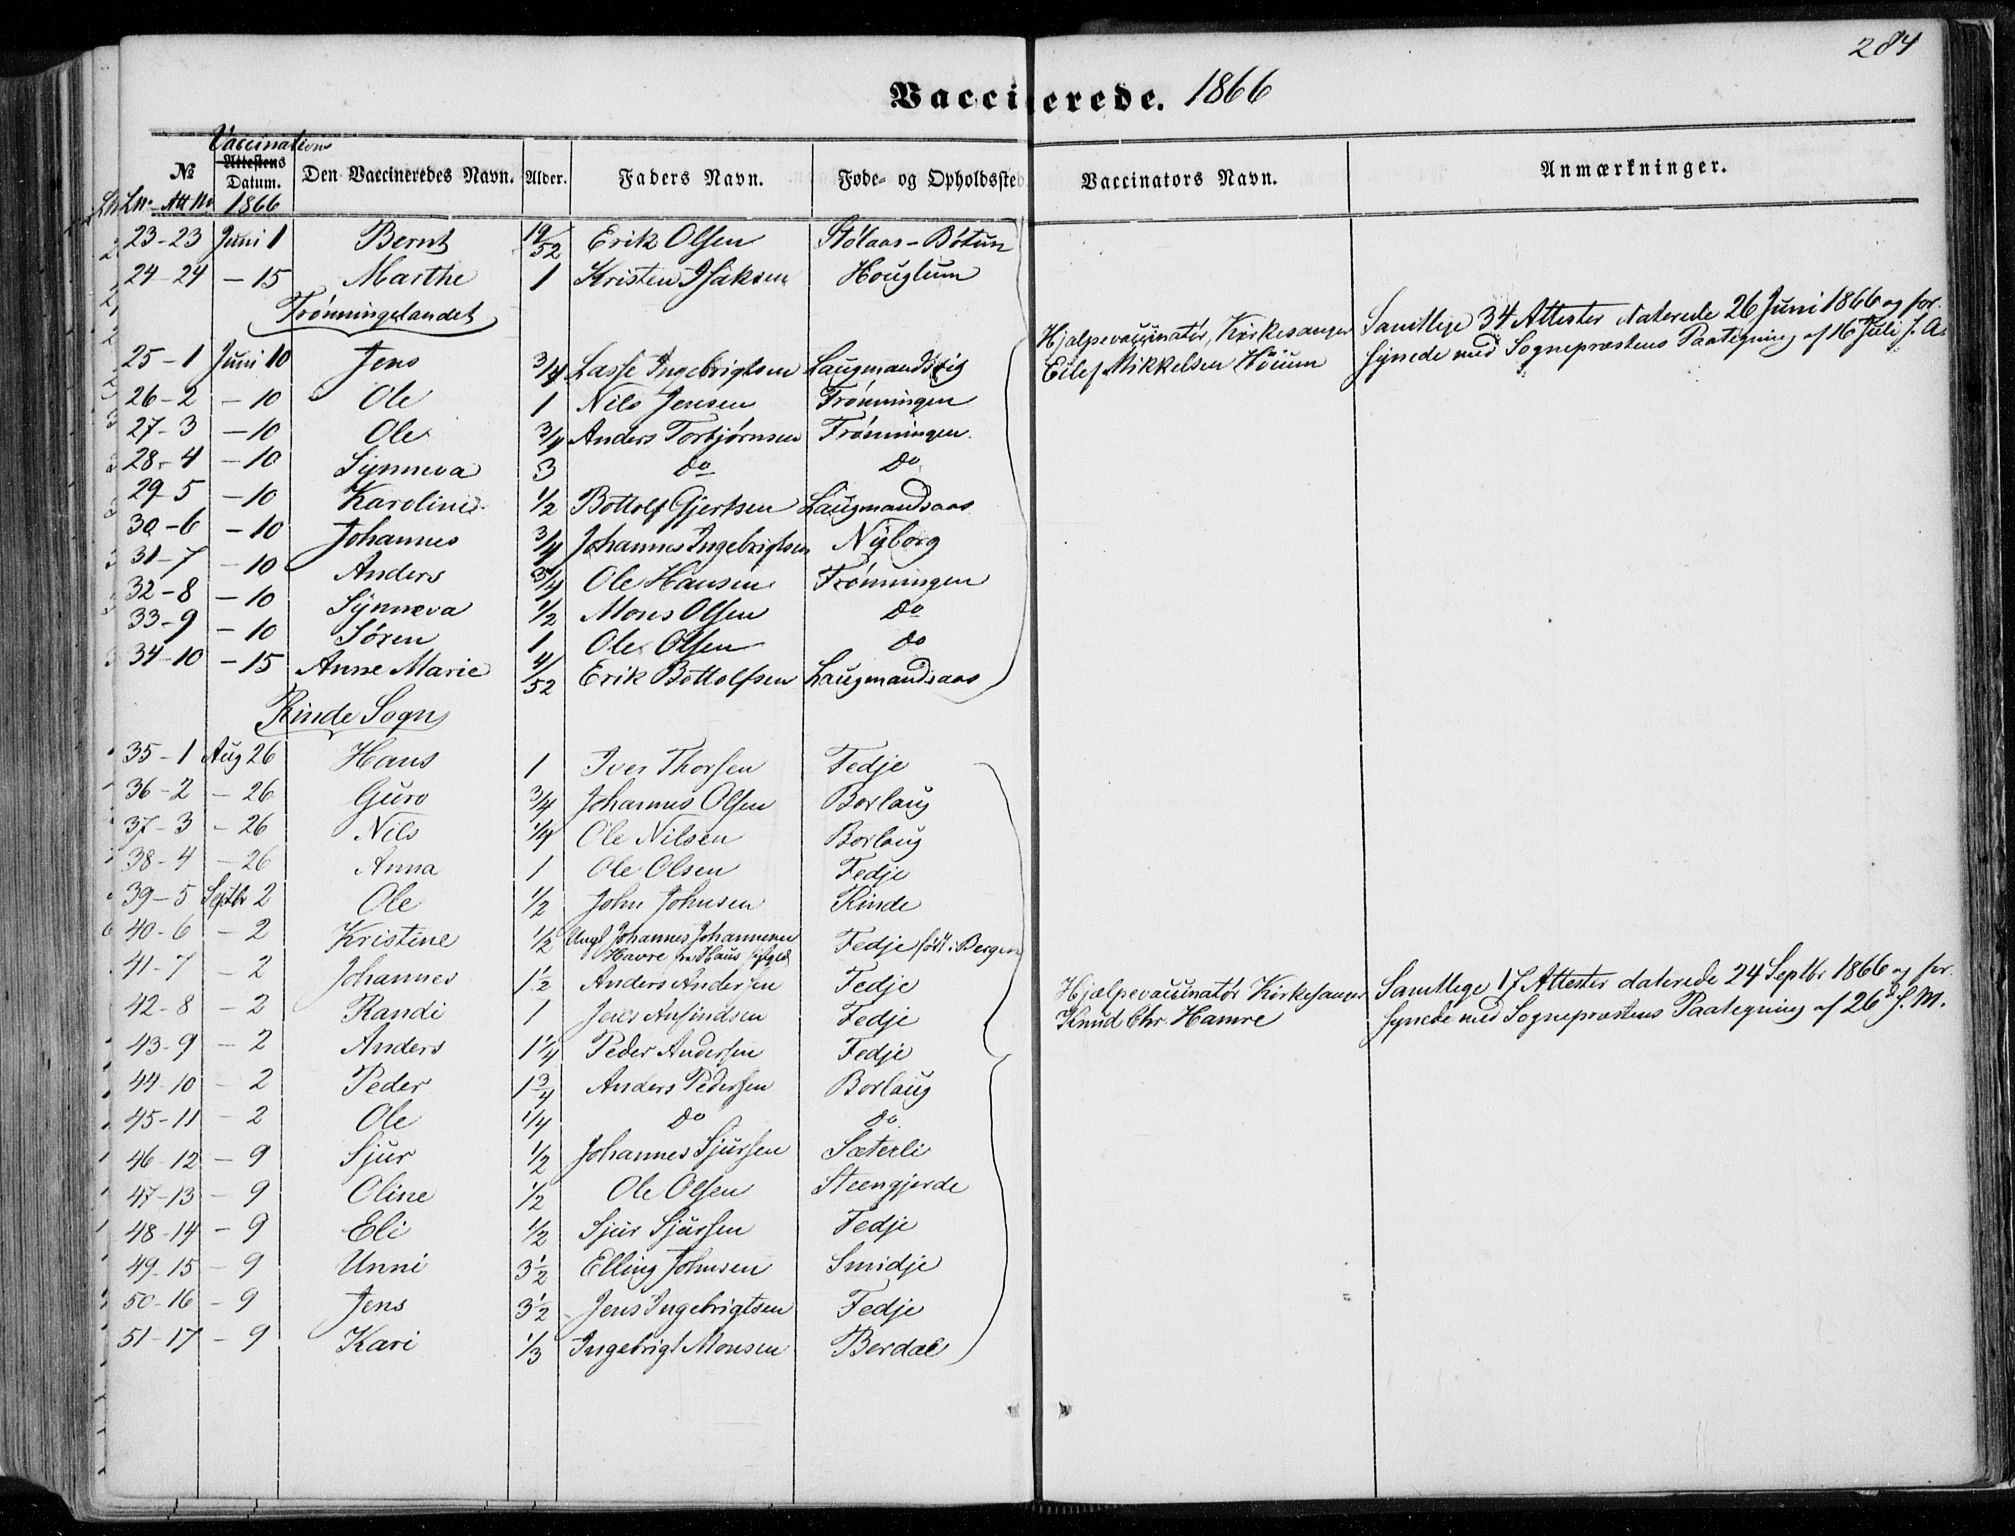 284
Vaccinerede. 1866
Vaccinations
№ Attestens Datum. Den Vaccineredes Navn. Alder. Faders Navn. Føde- og Opholdssted Vaccinators Navn. Anmærkninger.
Ln. Att No 1866
23-23 Juni 1 Bernt 19/52 Erik Olsen Stølaas-Bøtun
24-24 - 15 Marthe 1 Kristen Isaksen Houglum
Frønningelandet
Hjælpevaccinatør, Kirkesanger Samtlige 34 Attester daterede 26 Juni 1866 og for-
25-1 Juni 10 Jens 3/4 Lasse Ingebrigtsen Laugmandsvig Eilef Mikkelsen Høium synede med Sognepræstens Paategning af 16 Juli s. A.
26-2 - 10 Ole 1 Nils Jensen Frønningen
27-3 - 10 Ole 3/4 Anders Torbjørnsen Frønningen
28-4 - 10 Synneva 3 do do
29-5 - 10 Karoline 1/2 Bottolf Gjertsen Laugmandsaas
30-6 - 10 Johannes 3/4 Johannes Ingebrigtsen Nyborg
31-7 - 10 Anders 3/4 Ole Hansen Frønningen
32-8 - 10 Synneva 1/2 Mons Olsen do
33-9 - 10 Søren 1 Ole Olsen do
34-10 - 15 Anne Marie 4/52 Erik Bottolfsen Laugmandsaas
Rinde Sogn
35-1 Aug 26 Hans 1 Iver Thorsen Fedje
36-2 - 26 Guro 3/4 Johannes Olsen Borlaug
37-3 - 26 Nils 1/4 Ole Nilsen Borlaug
38-4 - 26 Anna 1 Ole Olsen Fedje
39-5 Septbr 2 Ole 1/2 John Johnsen Rinde
40-6 - 2 Kristine 1/2 Ungk Johannes Johannesen Fedje født i Bergen
Havre fra Haus
41-7 - 2 Johannes 1 1/2 Anders Andersen Fedje Hjælpevaccinatør Kirkesanger Samtlige 17 Attester daterede 24 Septbr 1866 og for-
42-8 - 2 Randi 1 Jens Anfindsen Fedje Knud Chr. Hamre synede med Sognepræstens Paategning af 26 s. M.
43-9 - 2 Anders 1 1/4 Peder Andersen Fedje
44-10 - 2 Peder 1 3/4 Anders Pedersen Borlaug
45-11 - 2 Ole 1/4 do do
46-12 - 9 Sjur 1/2 Johannes Sjursen Sæterli
47-13 - 9 Oline 1/2 Ole Olsen Steengjerde
48-14 - 9 Eli 1/2 Sjur Sjursen Fedje
49-15 - 9 Unni 3 1/2 Elling Johnsen Smidje
50-16 - 9 Jens 3 1/2 Jens Ingebrigtsen Fedje
51-17 - 9 Kari 1/3 Ingebrigt Monsen Berdal